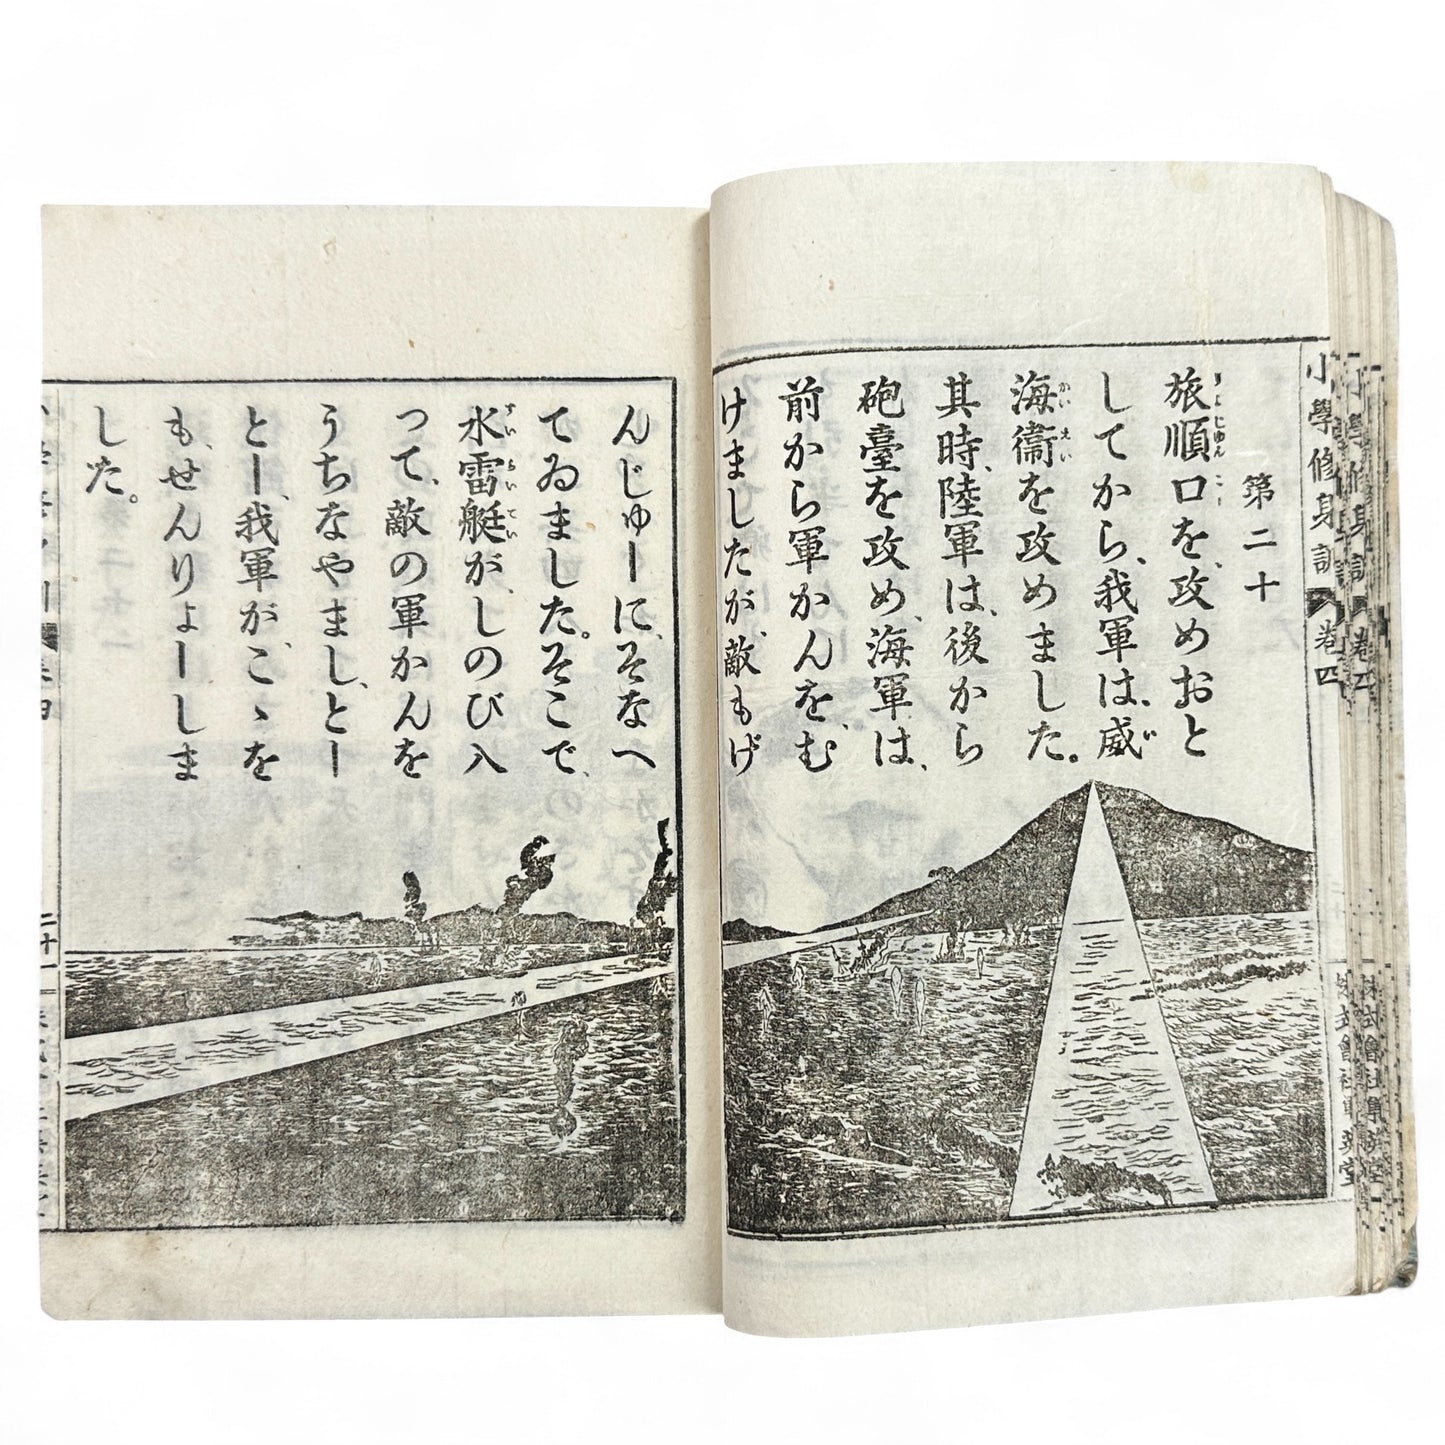 第二十
旅順口を、攻めおと
してから、我軍は、威
海衞を攻めました。
其時、陸軍は、後から
砲臺を攻め、海軍は、
前から軍かんを、む
けましたが、敵もげ
んじゅーに、そなへ
てゐました。そこで、
水雷艇が、しのび入
って、敵の軍かんを
うちなやまし、とー
とー、我軍が、こゝを
も、せんりょーしま
した。
小學修身訓 卷四